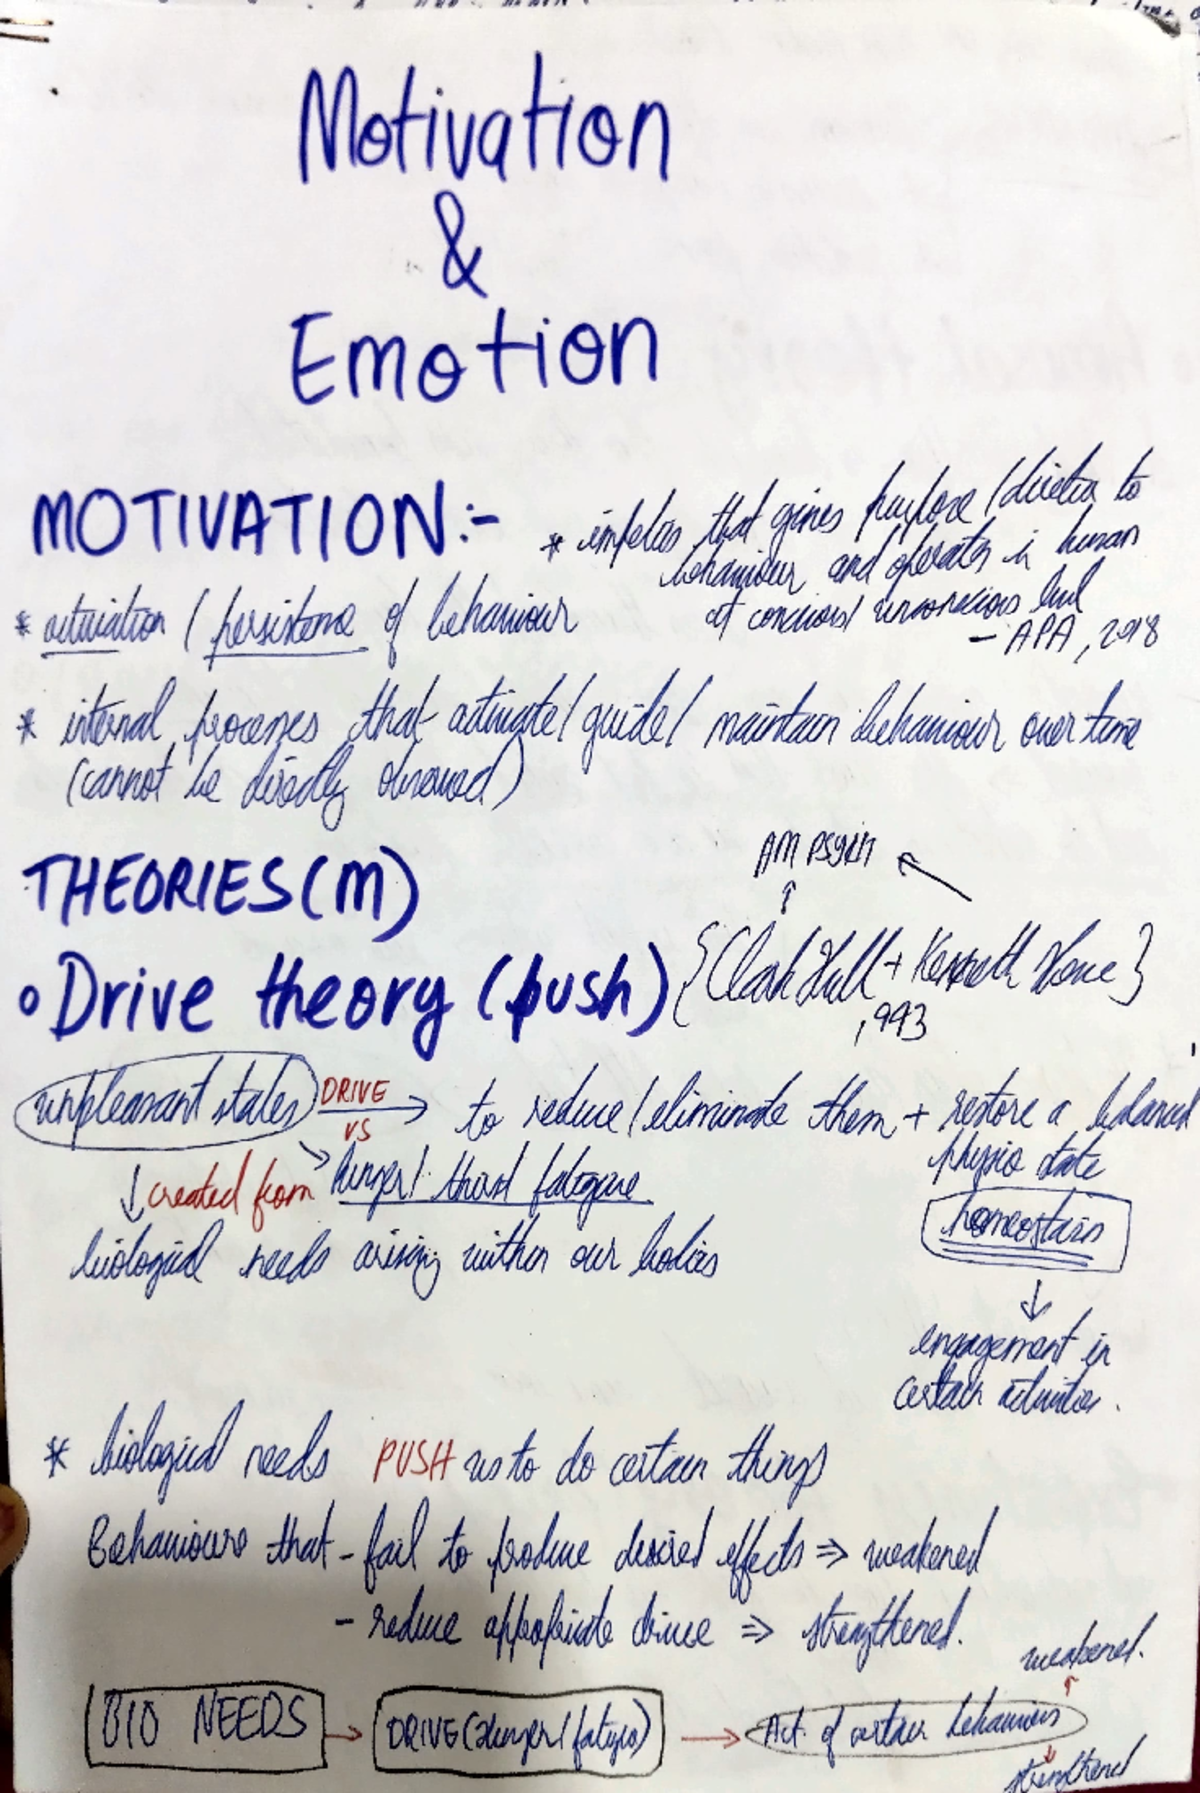 Motivation
&
Emotion
MOTIVATION:-
* impetus that gives purpose / direction to
behaviour and operates in human
at conscious / unconscious level
– APA, 2018
* activation / persistence of behaviour
* internal processes that activate / guide / maintain behaviour over time
(cannot be directly observed)
THEORIES (M)
AM PSYCH
• Drive theory (push) {Clark Hull + Kenneth }
, 1943
unpleasant states DRIVE → to reduce / eliminate them + restore a balanced
vs
physio state
↓ created from hunger / thirst fatigue
homeostasis
biological needs arising within our bodies
↓
engagement in
certain activities.
* biological needs PUSH us to do certain things
Behaviours that – fail to produce desired effects ⇒ weakened
– reduce appropriate drive ⇒ strengthened.
weakened.
BIO NEEDS → DRIVE (Hunger / fatigue) → Act. of certain behaviours
strengthened